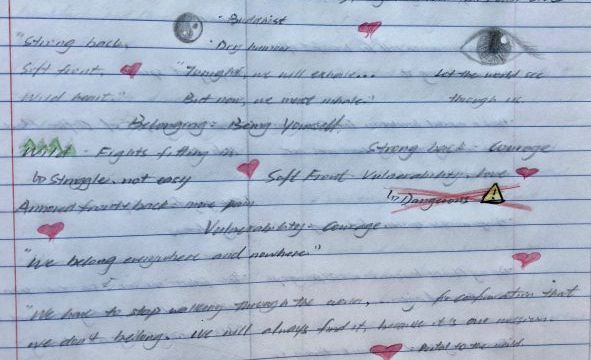 · Buddhist
"Strong back, · Dry humor
Soft front, "Tonight, we will exhale... Let the world see
Wild heart." But now, we must inhale." through us.
Belonging = Being Yourself.
Wild - Fights fitting in Strong back - Courage
↳ Struggle, not easy Soft Front Vulnerability, love
Armored front & back = more pain ↳ Dangerous
Vulnerability = courage
"We belong everywhere and nowhere."
"We have to stop walking through the world, for confirmation that
we don't belong. We will always find it, because it's our mission.
- Portal to the